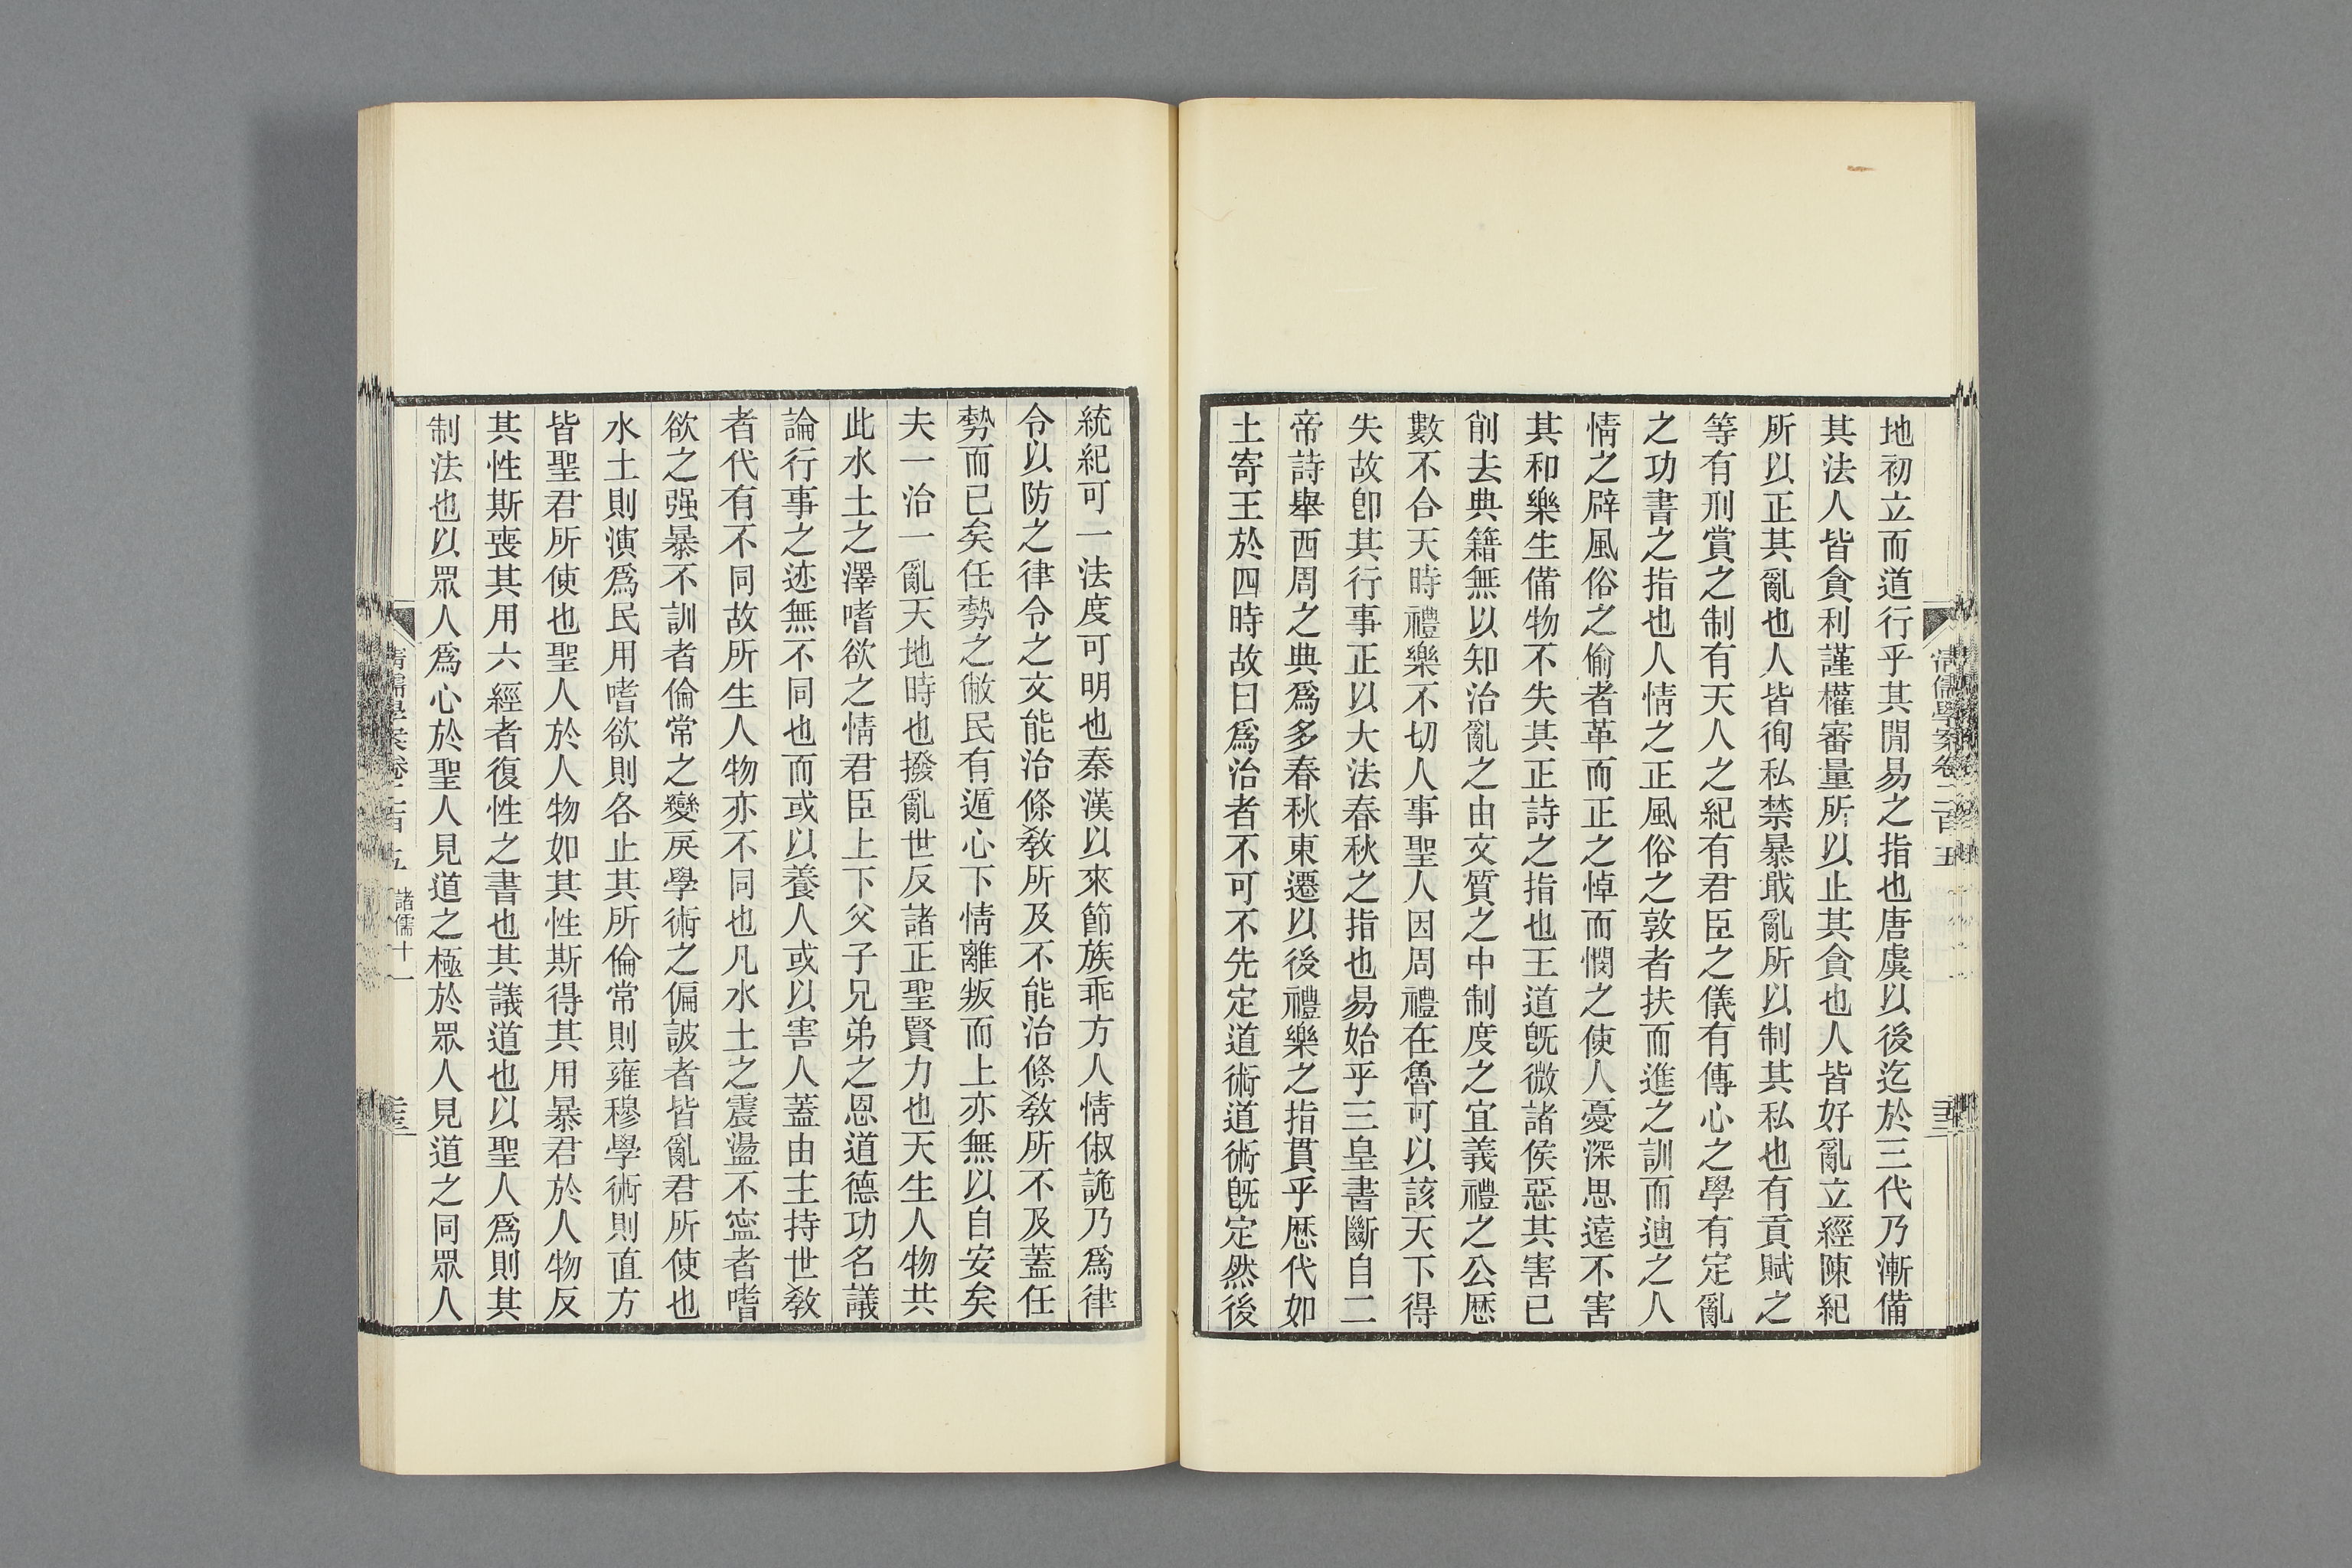 地初立而道行乎其閒易之指也唐虞以後迄於三代乃漸備
其法人皆貪利謹權審量所以止其貪也人皆好亂立經陳紀
所以正其亂也人皆徇私禁暴戢亂所以制其私也有貢賦之
等有刑賞之制有天人之紀有君臣之儀有傳心之學有定亂
之功書之指也人情之正風俗之敦者扶而進之訓而迪之人
情之辟風俗之偷者革而正之悼而憫之使人憂深思遠不害
其和樂生備物不失其正詩之指也王道旣微諸侯惡其害已
削去典籍無以知治亂之由文質之中制度之宜義禮之公厯
數不合天時禮樂不切人事聖人因周禮在魯可以該天下得
失故卽其行事正以大法春秋之指也易始乎三皇書斷自二
帝詩舉西周之典爲多春秋東遷以後禮樂之指貫乎厯代如
土寄王於四時故曰爲治者不可不先定道術道術旣定然後
清儒學案卷二百五
統紀可一法度可明也秦漢以來節族乖方人情俶詭乃爲律
令以防之律令之文能治條敎所及不能治條敎所不及蓋任
勢而已矣任勢之敝民有遁心下情離叛而上亦無以自安矣
夫一治一亂天地時也撥亂世反諸正聖賢力也天生人物共
此水土之澤嗜欲之情君臣上下父子兄弟之恩道德功名議
論行事之迹無不同也而或以養人或以害人蓋由主持世敎
者代有不同故所生人物亦不同也凡水土之震盪不寍者嗜
欲之强暴不訓者倫常之變戾學術之偏詖者皆亂君所使也
水土則演爲民用嗜欲則各止其所倫常則雍穆學術則直方
皆聖君所使也聖人於人物如其性斯得其用暴君於人物反
其性斯喪其用六經者復性之書也其議道也以聖人爲則其
制法也以眾人爲心於聖人見道之極於眾人見道之同眾人
清儒學案卷二百五 諸儒十一